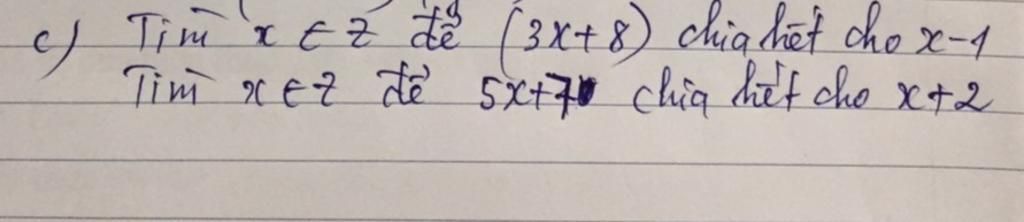 c) Tìm x ∈ Z để (3x+8) chia hết cho x-1
Tìm x ∈ Z để 5x+7 chia hết cho x+2